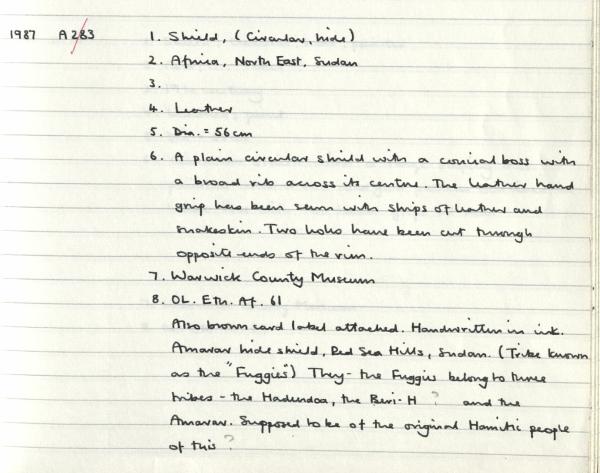 1987 A283 1. Shield, (Circular, hide)
2. Africa, North East, Sudan
3.
4. Leather
5. Dia. = 56cm
6. A plain circular shield with a conical boss with
a broad rib across its centre. The leather hand
grip has been sewn with strips of leather and
snakeskin. Two holes have been cut through
opposite ends of the rim.
7. Warwick County Museum
8. OL. Eth. Af. 61
Also brown card label attached. Handwritten in ink.
Amarar hide shield, Red Sea Hills, Sudan. (Tribe known
as the "Fuggies") They - the Fuggies belong to three
tribes - the Hadendoa, the Beri-H ? and the
Amarar. Supposed to be of the original Hamitic people
of this ?